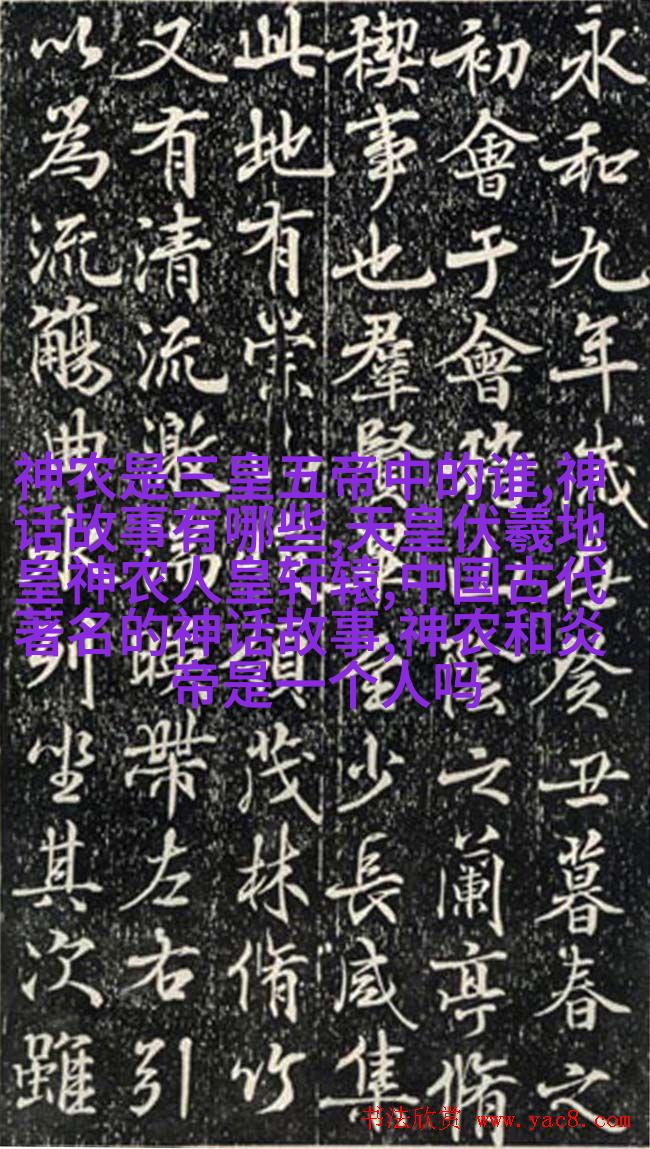 永和九年歲在癸丑暮春之
初會于會陰之蘭亭脩
稧事也羣賢至少長咸集
此地有崇領茂林脩竹
又有清流激湍暎帶左右引
以為流觴曲列坐其次雖
神农是三皇五帝中的谁,神
话故事有哪些,天皇伏羲地
皇神农人皇轩辕,中国古代
著名的神话故事,神农和炎
帝是一个人吗
书法欣赏 www.yac8.com